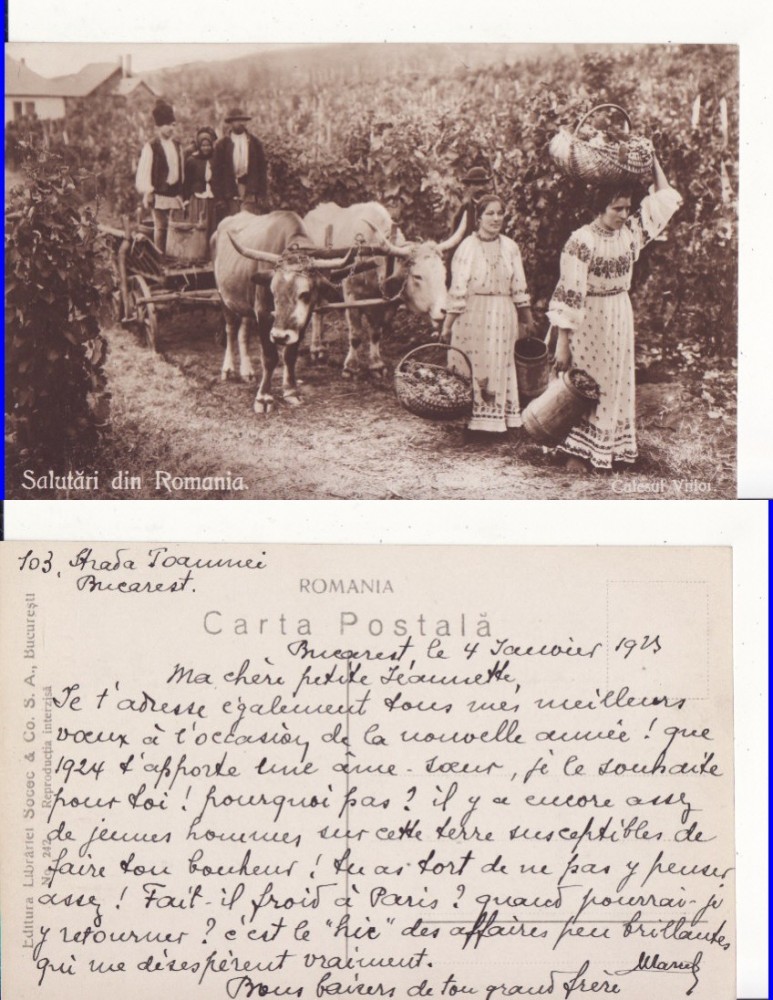 Salutări din Romania.
Culesul Viilor.
103, Strada Toamnei
Bucarest.
ROMANIA
Carta Postală
Editura Librăriei Socec & Co. S. A., București
No. 242 Reproducția interzisă
Bucarest le 4 Janvier 1923
Ma chère petite Jéannette,
Je t'adresse également tous mes meilleurs
vœux à l'occasion de la nouvelle année ! que
1924 t'apporte une âme-sœur, je le souhaite
pour toi ! pourquoi pas ? il y a encore assez
de jeunes hommes sur cette terre susceptibles de
faire ton bonheur ! tu as tort de ne pas y penser
assez ! Fait-il froid à Paris ? quand pourrai-je
y retourner ? c'est le "hic" des affaires peu brillantes
qui me désespèrent vraiment.
Bons baisers de ton grand frère